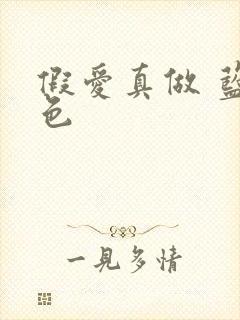 假愛真做 藍
色
一見多情